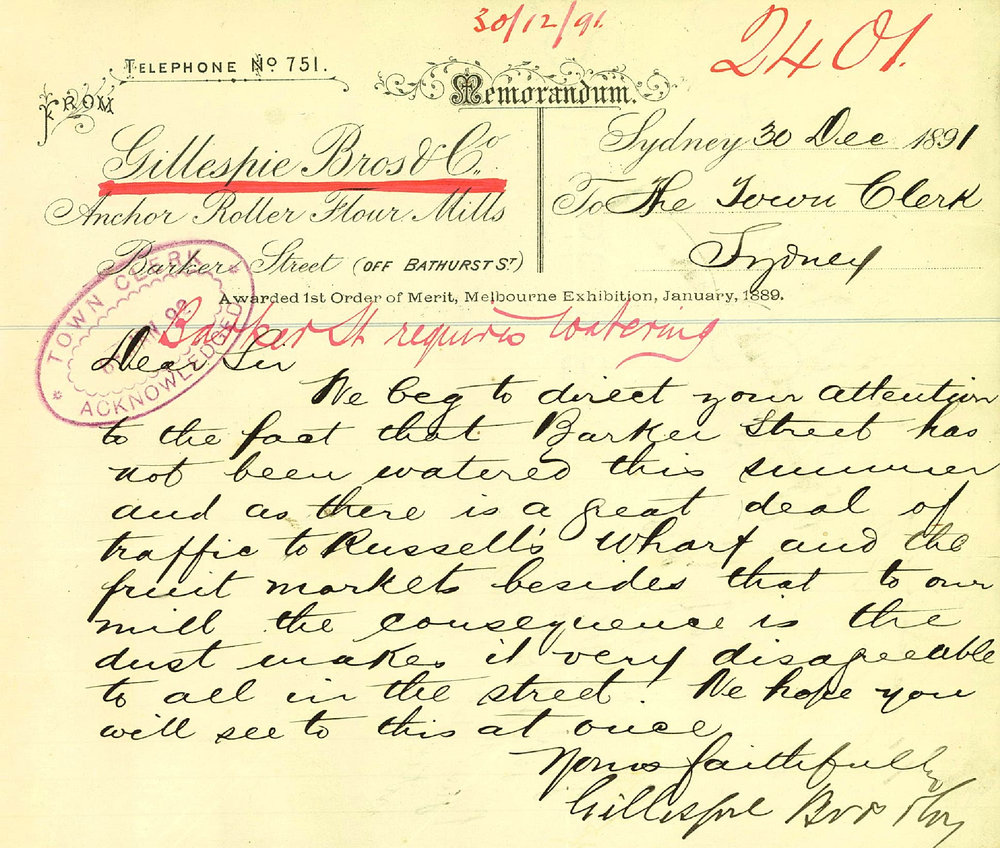 30/12/91.
2401.
TELEPHONE No 751.
Memorandum.
FROM
Gillespie Bros & Co.
Sydney 30 Dec 1891
Anchor Roller Flour Mills
To The Town Clerk
Barker Street (OFF BATHURST ST)
Sydney
Awarded 1st Order of Merit, Melbourne Exhibition, January, 1889.
TOWN CLERK
ACKNOWLEDGED
Barker St. requires watering
Dear Sir
We beg to direct your attention
to the fact that Barker Street has
not been watered this summer
and as there is a great deal of
traffic to Russell's Wharf and the
fruit markets besides that to our
mill the consequence is the
dust makes it very disagreeable
to all in the street. We hope you
will see to this at once
Yours faithfully
Gillespie Bros & Coy